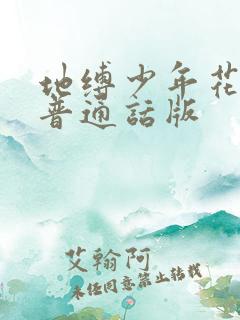 地缚少年花
普通話版
艾翰阿
未经同意禁止转载